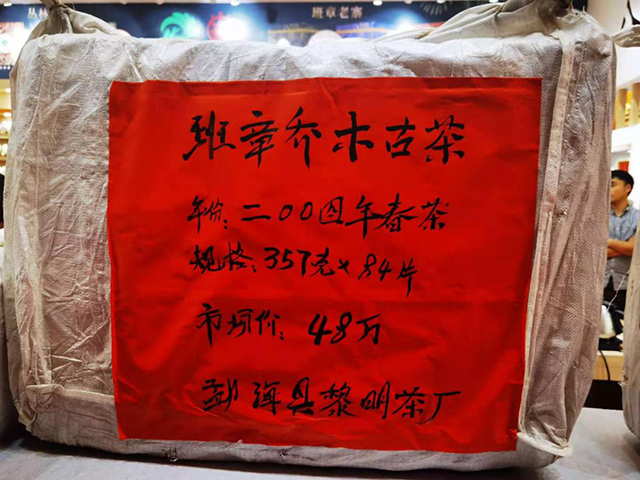 班章老寨
班章乔木古茶
年份:二00四年春茶
规格:357克×84片
市场价:48万
勐海县黎明茶厂